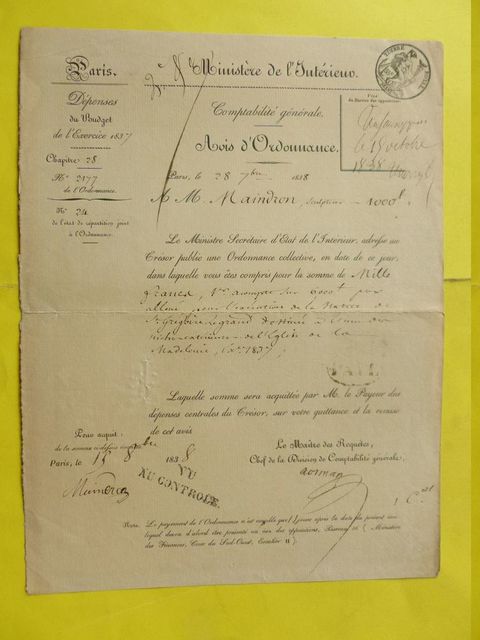 Paris.
Ministère de l'Intérieur.
TIMBRE
Dépenses
du Budget
de l'Exercice 1837
Comptabilité générale.
Avis d'Ordonnance.
Visa
du Bureau des oppositions
le 15 octobre
1838
Chapitre 28
N.° 2177
de l'Ordonnance.
Paris, le 28 7bre 1838
N.° 24
de l'état de répartition joint
à l'Ordonnance.
A M. Maindron, sculpteur - 1000 f
Le Ministre Secrétaire d'État de l'Intérieur, adresse au
Trésor public une Ordonnance collective, en date de ce jour,
dans laquelle vous êtes compris pour la somme de Mille
francs, acompte sur 6000 f
pour l'exécution de la Statue de
St Grégoire le grand destinée à l'une des
niches de l'Eglise de la
Madeleine, 1837
Laquelle somme sera acquittée par M. le Payeur des
dépenses centrales du Trésor, sur votre quittance et la remise
de cet avis
Pour acquit
de la somme ci-dessus
Paris, le 15 8bre 1838
Maindron
VU
AU CONTROLE.
Le Maître des Requêtes,
Chef de la Division de Comptabilité générale.
Nota. Le payement de l'Ordonnance n'est exigible que jours après la date du présent avis
lequel devra d'abord être présenté au visa des oppositions, Bureau et ( Ministère
des Finances, Cour du Sud-Ouest, Escalier